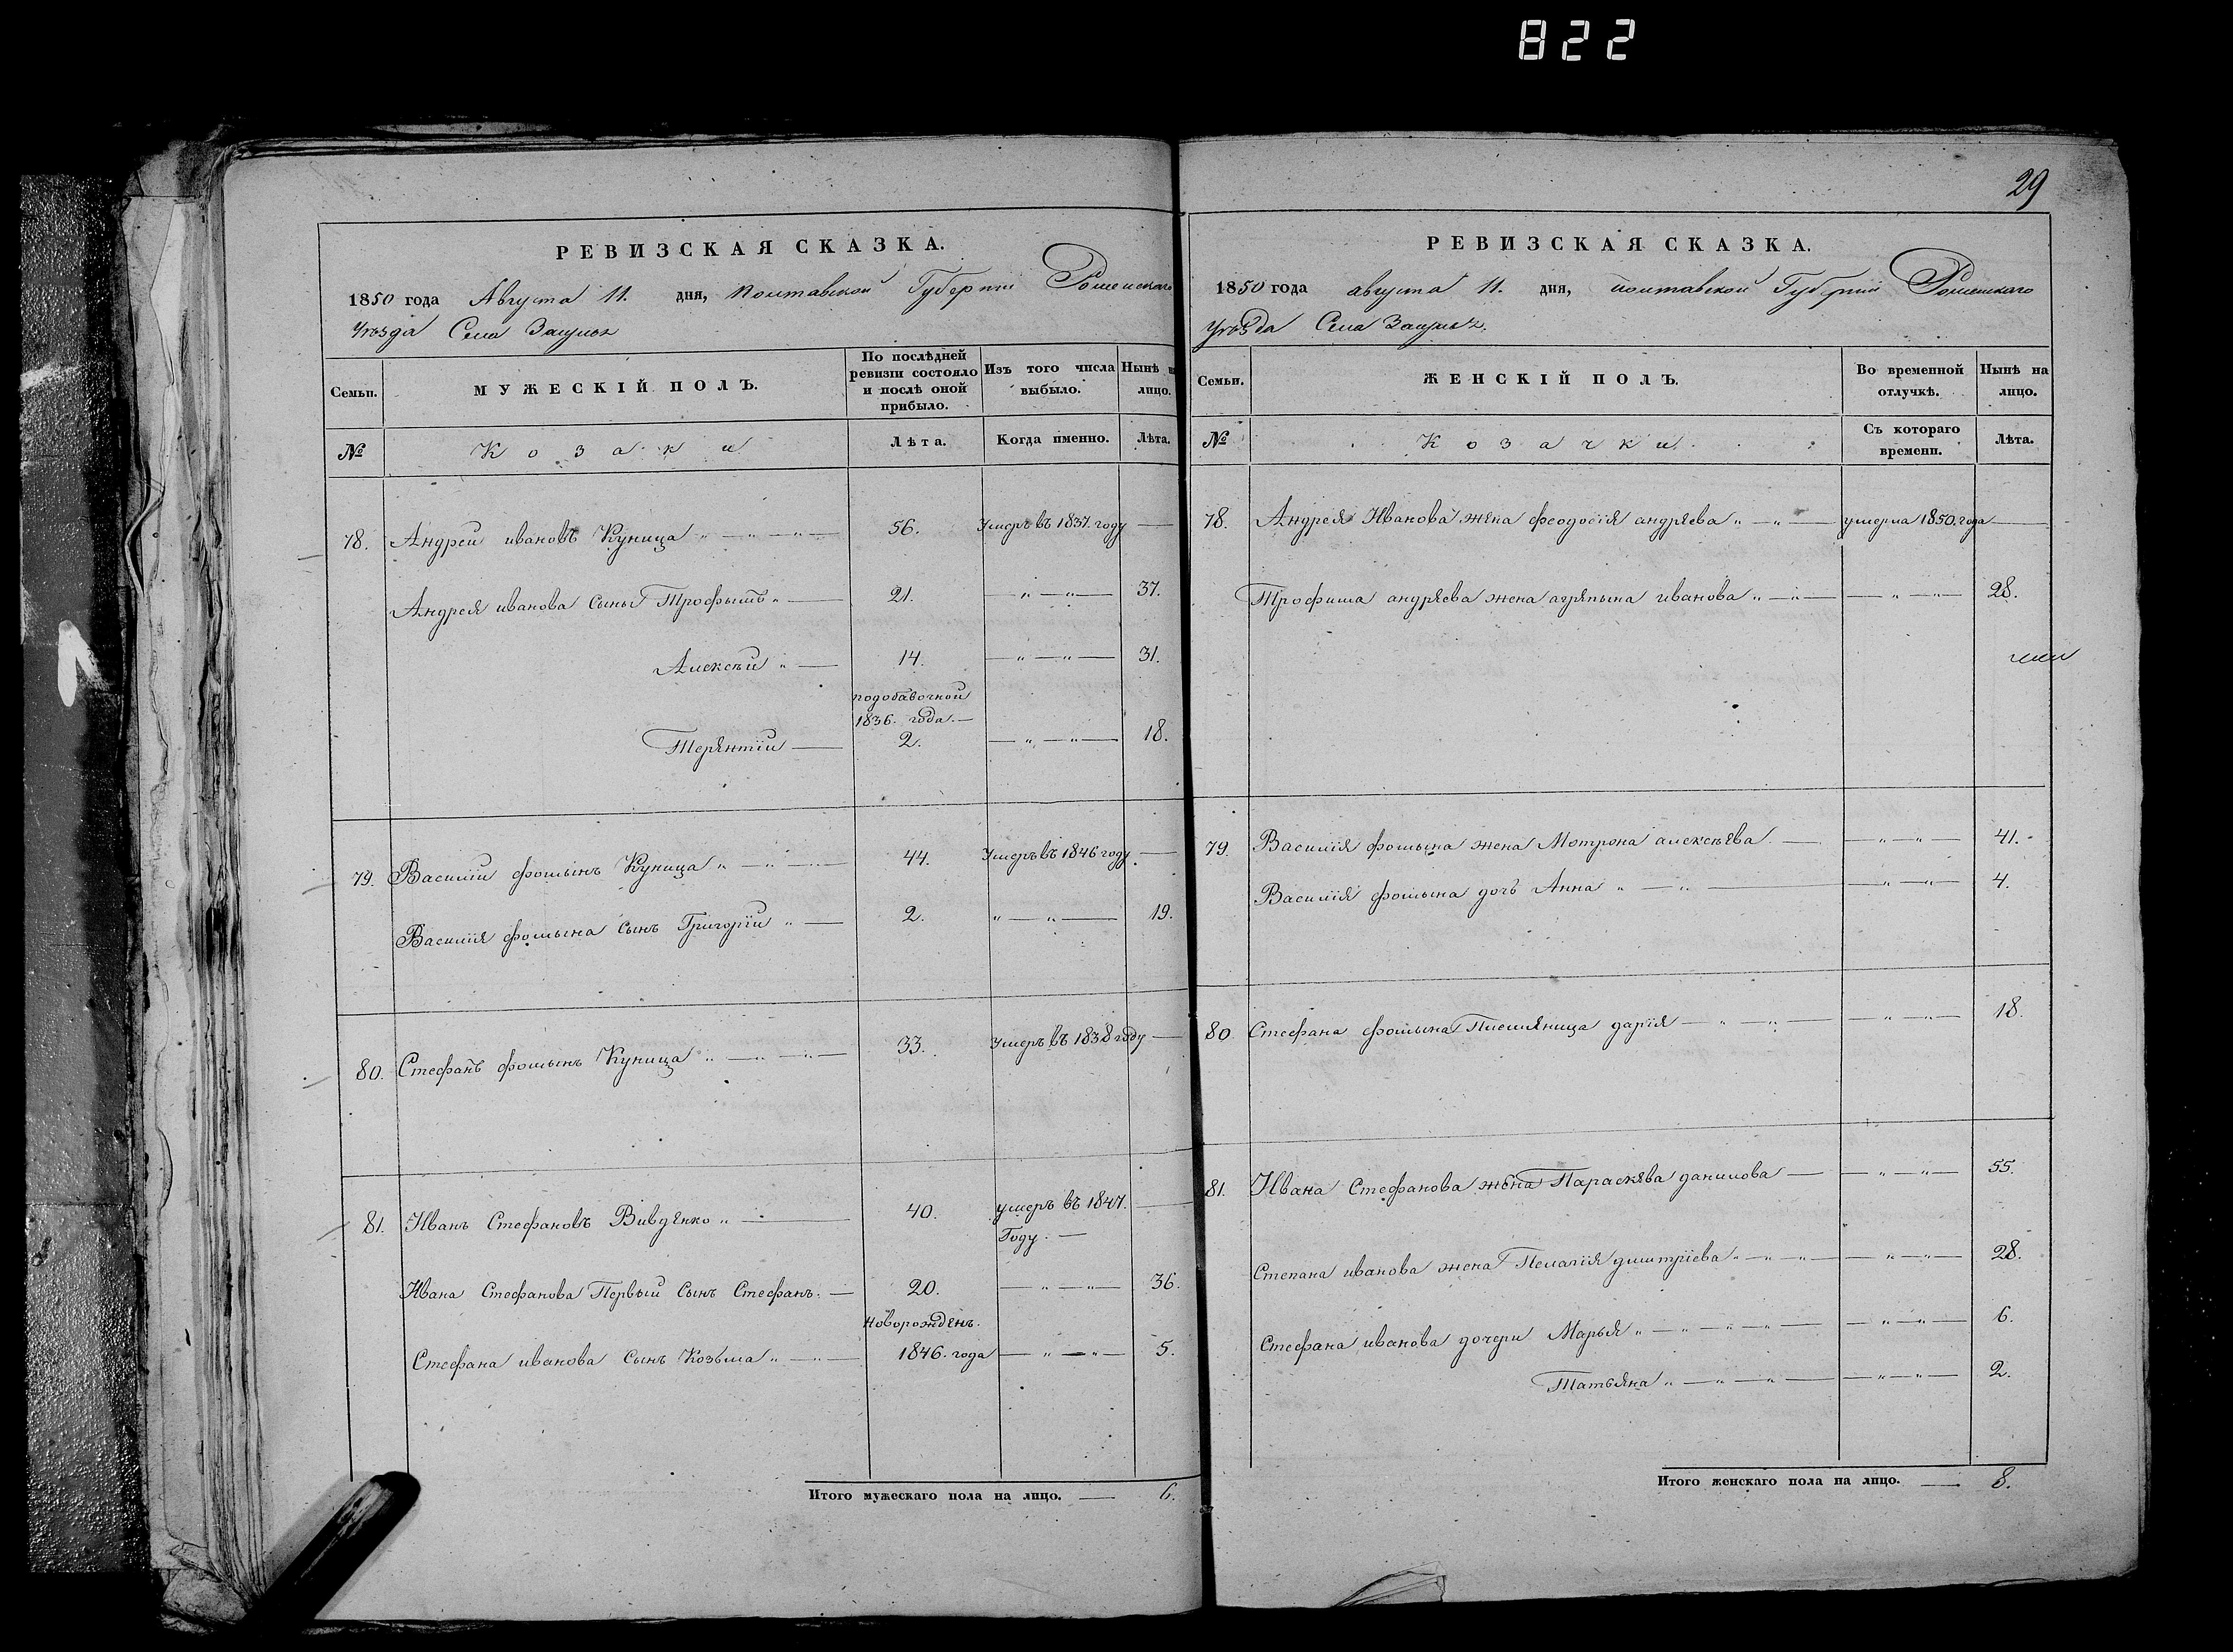 822
29
РЕВИЗСКАЯ СКАЗКА.
1850 года Августа 11. дня, Полтавской Губерніи Роменскаго
Уѣзда Села
МУЖЕСКІЙ ПОЛЪ.
Семьи.
По послѣдней ревизіи состояло и послѣ оной прибыло.
Изъ того числа выбыло.
Нынѣ на лицо.
№
Козаки
Лѣта.
Когда именно.
Лѣта.
78. Андрей ивановъ Куница „ — „ — 56. Умеръ въ 1837. году —
Андрея иванова сыны Трофымъ „ — 21. — „ — „ — 37.
Алексѣй „ — 14. — „ — „ — 31.
подобавочной
1836. года. —
Терентій — 2. — „ — „ — 18.
79. Василій фомынъ Куница „ — „ — 44. Умеръ въ 1846 году. —
Василія фомына сынъ Григорій „ — 2. „ — „ — 19.
80. Стефанъ фомынъ Куница „ — „ — „ — 33. Умеръ въ 1838 году —
81. Иванъ Стефановъ Вивденко „ — 40. умеръ въ 1847. —
Году. —
Ивана Стефанова Первый сынъ Стефанъ. — 20. — „ — „ — 36.
Новорожденъ.
Стефана иванова сынъ Козьма „ — „ — 1846. года — „ — „ — 5.
Итого мужескаго пола на лицо. — 6.
РЕВИЗСКАЯ СКАЗКА.
1850 года августа 11. дня, полтавской Губерніи Роменскаго
Уѣзда Села
Семьи.
ЖЕНСКІЙ ПОЛЪ.
Во временной отлучкѣ.
Нынѣ на лицо.
№
Козачки
Съ котораго времени.
Лѣта.
78. Андрея Иванова жена феодосія андрѣева „ — „ — умерла 1850. года —
Трофима андрѣева жена агрипына иванова „ — „ — — „ — „ — 28.
79. Василія фомына жена Мотрона алексѣева — — „ — „ — 41.
Василія фомына дочь Анна „ — „ — — „ — „ — 4.
80. Стефана фомына Племяница дарія — „ — „ — — „ — „ — 18.
81. Ивана Стефанова жена Параскева данилова — — „ — „ — 55.
Степана иванова жена Пелагія дмитріева „ — „ — „ — — „ — „ — 28.
Стефана иванова дочери Марья „ — „ — „ — „ — — „ — „ — 6.
Татьяна „ — „ — „ — — „ — „ — 2.
Итого женскаго пола на лицо. — 8.